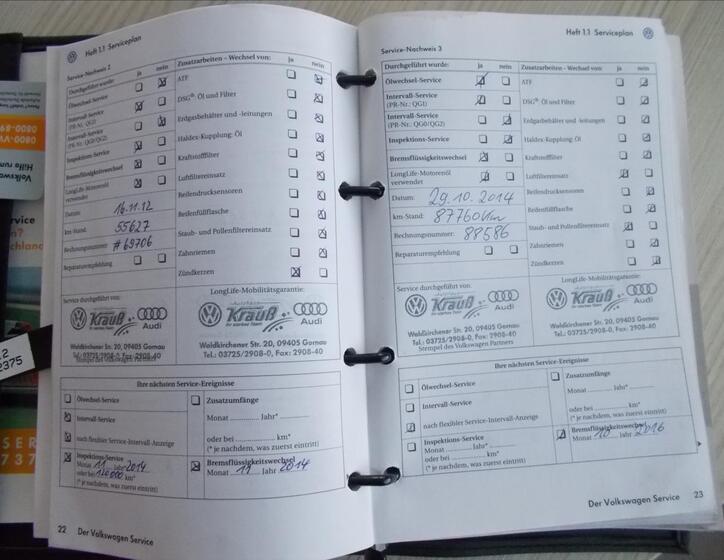 Heft 1.1 Serviceplan
Service-Nachweis 2
Durchgeführt wurde: ja nein
Ölwechsel-Service
Intervall-Service
(PR-Nr.: QG1)
Intervall-Service
(PR-Nr.: QG0/QG2)
Inspektions-Service
Bremsflüssigkeitswechsel
LongLife-Motorenöl
verwendet
Datum:
16.11.12
km-Stand:
55627
Rechnungsnummer:
#69706
Reparaturempfehlung
Zusatzarbeiten - Wechsel von: ja nein
ATF
DSG®: Öl und Filter
Erdgasbehälter und -leitungen
Haldex-Kupplung: Öl
Kraftstofffilter
Luftfiltereinsatz
Reifendrucksensoren
Reifenfüllflasche
Staub- und Pollenfiltereinsatz
Zahnriemen
Zündkerzen
Service durchgeführt von:
Krauß
Ihr starkes Team
Audi
Waldkirchener Str. 20, 09405 Gornau
Tel.: 03725/2908-0, Fax: 2908-40
Stempel des Volkswagen Partners
LongLife-Mobilitätsgarantie:
Krauß
Ihr starkes Team
Audi
Waldkirchener Str. 20, 09405 Gornau
Tel.: 03725/2908-0, Fax: 2908-40
Ihre nächsten Service-Ereignisse
Ölwechsel-Service
Intervall-Service
nach flexibler Service-Intervall-Anzeige
Inspektions-Service
Monat 11 Jahr* 2014
oder bei 120000 km*
(* je nachdem, was zuerst eintritt)
Zusatzumfänge
Monat Jahr*
oder bei km*
(* je nachdem, was zuerst eintritt)
Bremsflüssigkeitswechsel
Monat 11 Jahr 2014
22 Der Volkswagen Service
Heft 1.1 Serviceplan
Service-Nachweis 3
Durchgeführt wurde: ja nein
Ölwechsel-Service
Intervall-Service
(PR-Nr.: QG1)
Intervall-Service
(PR-Nr.: QG0/QG2)
Inspektions-Service
Bremsflüssigkeitswechsel
LongLife-Motorenöl
verwendet
Datum: 29.10.2014
km-Stand: 87760km
Rechnungsnummer: 88586
Reparaturempfehlung
Zusatzarbeiten - Wechsel von: ja nein
ATF
DSG®: Öl und Filter
Erdgasbehälter und -leitungen
Haldex-Kupplung: Öl
Kraftstofffilter
Luftfiltereinsatz
Reifendrucksensoren
Reifenfüllflasche
Staub- und Pollenfiltereinsatz
Zahnriemen
Zündkerzen
Service durchgeführt von:
Krauß
Audi
Waldkirchener Str. 20, 09405 Gornau
Tel.: 03725/2908-0, Fax: 2908-40
Stempel des Volkswagen Partners
LongLife-Mobilitätsgarantie:
Krauß
Audi
Waldkirchener Str. 20, 09405 Gornau
Tel.: 03725/2908-0, Fax: 2908-40
Ihre nächsten Service-Ereignisse
Ölwechsel-Service
Intervall-Service
nach flexibler Service-Intervall-Anzeige
Inspektions-Service
Monat Jahr*
oder bei km*
(* je nachdem, was zuerst eintritt)
Zusatzumfänge
Monat Jahr*
oder bei km*
(* je nachdem, was zuerst eintritt)
Bremsflüssigkeitswechsel
Monat 10 Jahr 2016
Der Volkswagen Service 23
2375
SER
737